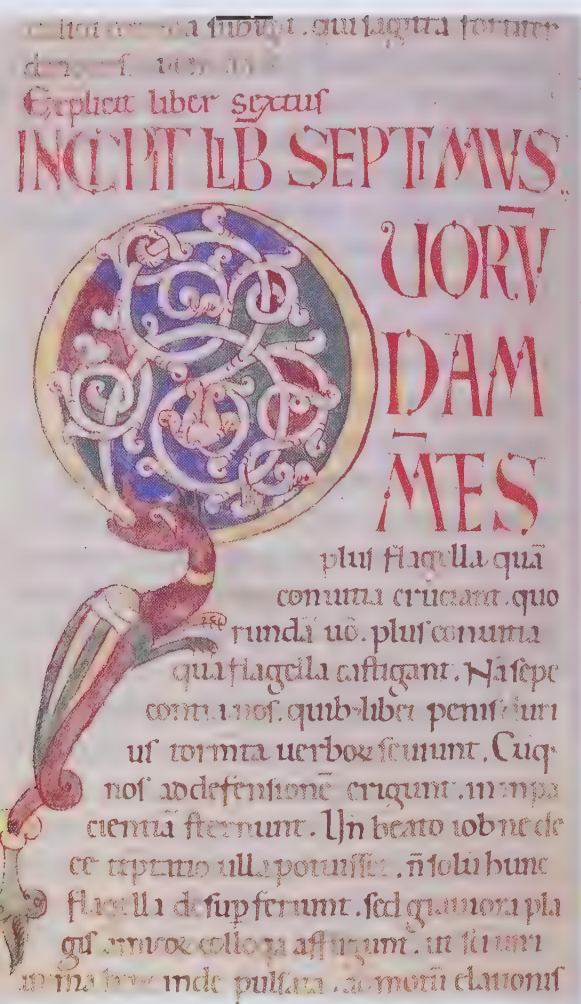 a subrui. qui sagitta fortiter
Explicit liber sextus
INCIPIT LIB̅ SEPTIMVS
QUORV̅
DAM
M̅ES
plus flagella quā
conumia cruciant. quo
rundā uō. plus conumia
quā flagella castigant. Nā sepe
nos. quibuslibet penis duri
us torm̅ta uerboꝝ seuiunt. Cūq;
nos ad defensionē erigunt. in inpa
cientiā sternunt. Un beato iob ne de
ee teptatio ulla potuisset. n̄ solū hunc
flagella desup feriunt. sed grauiora pla
gis amicoꝝ colloq̄a affligunt. ut sc̄i uiri
anima hinc inde pulsata. ad motū elationis